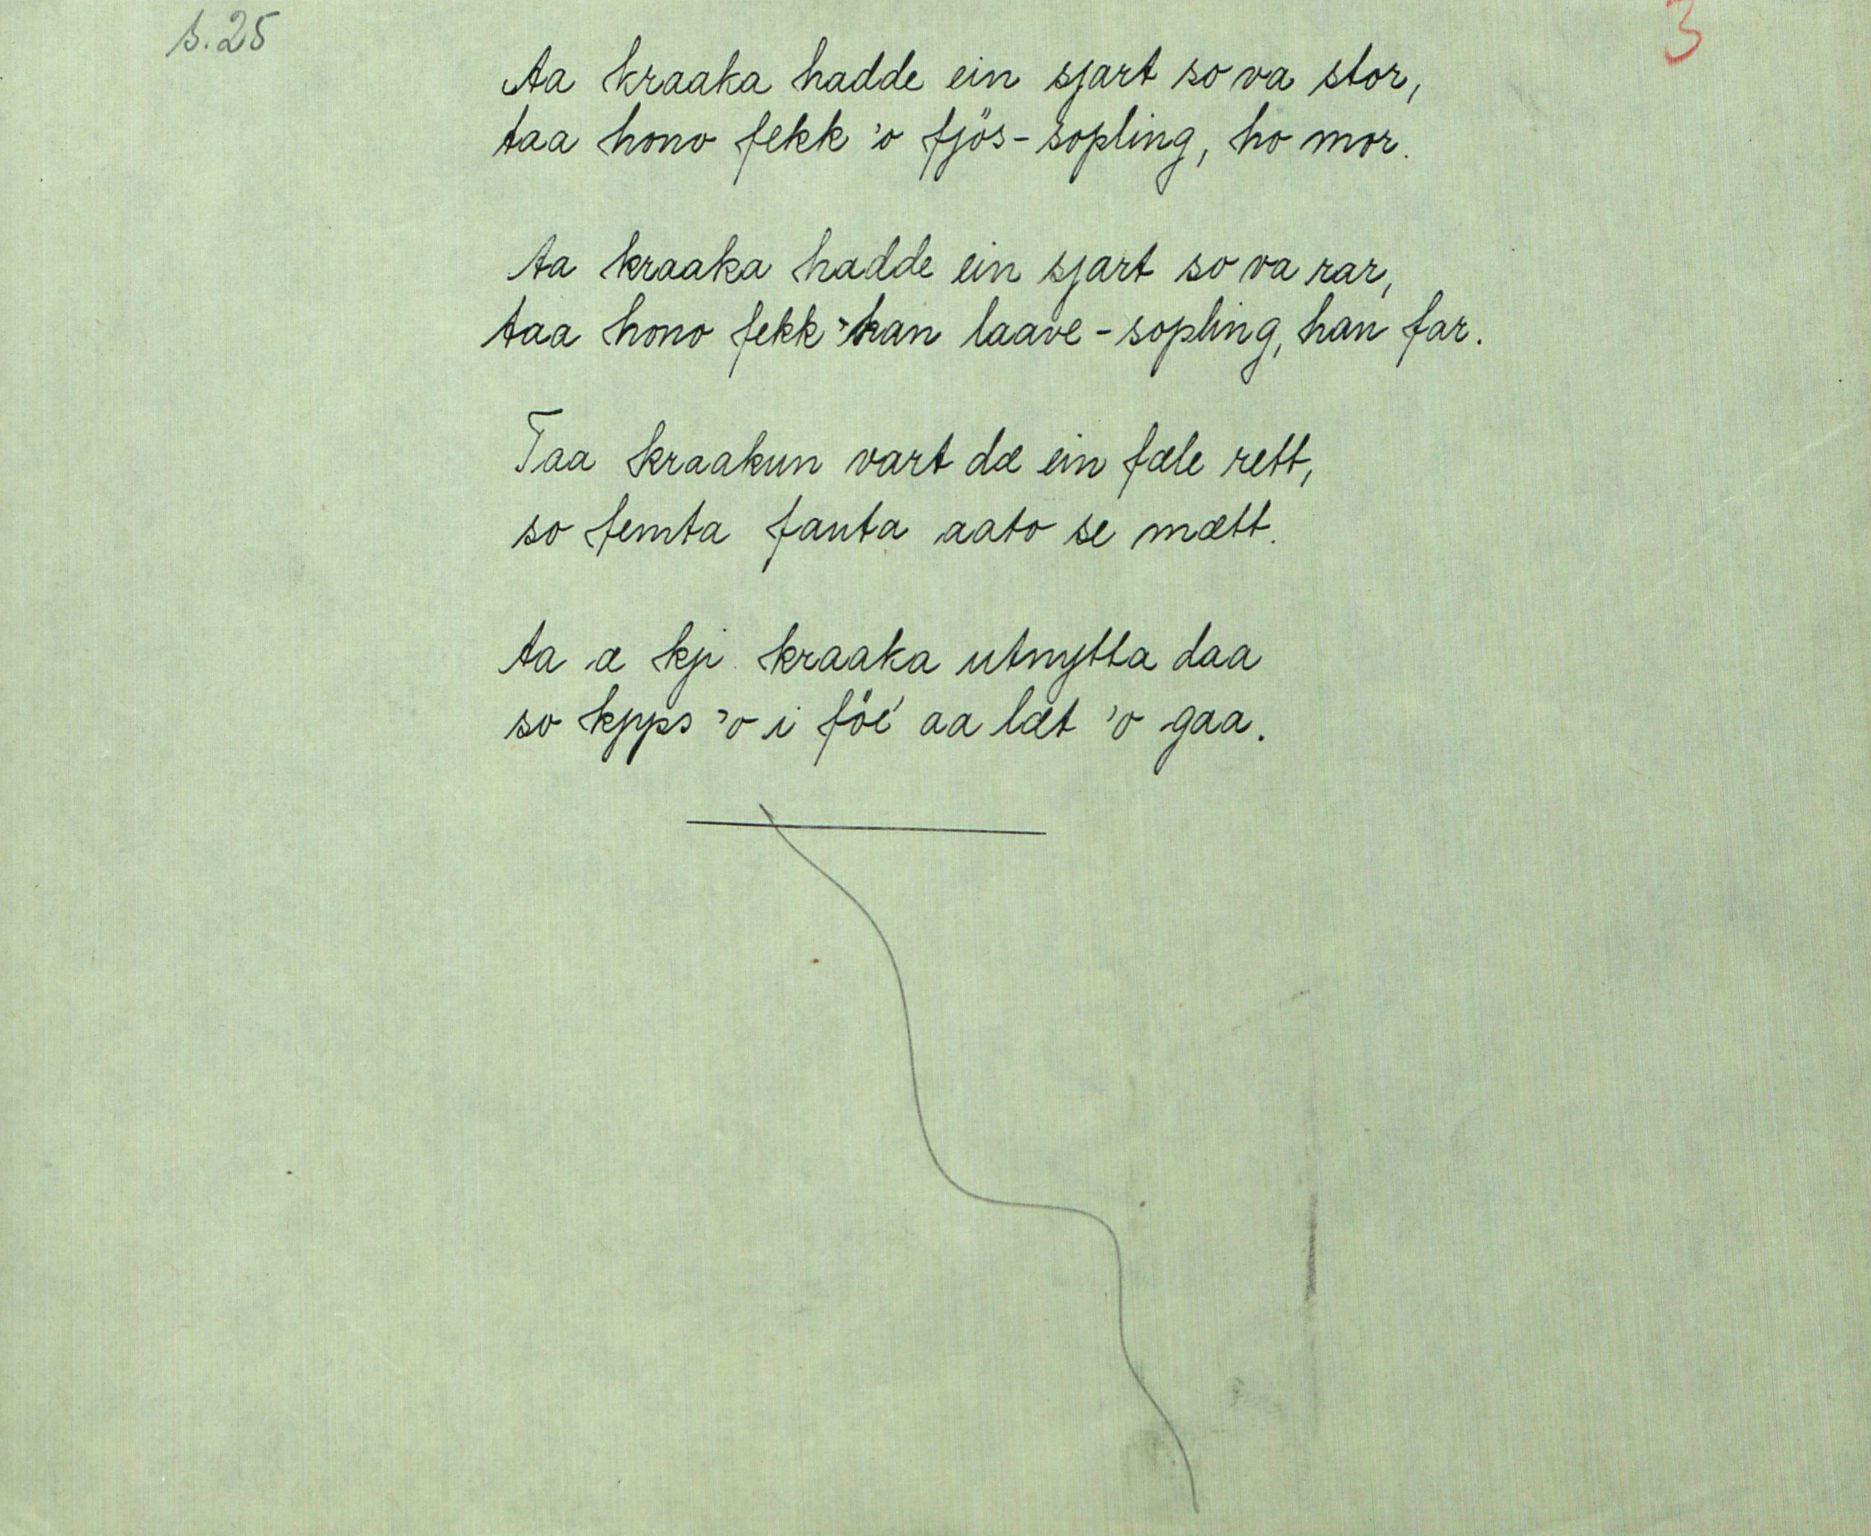 s.25
3
Aa kraaka hadde ein sjart so va stor,
taa hono fekk 'o fjös-sopling, ho mor.
Aa kraaka hadde ein sjart so va rar,
taa hono fekk 'han laave-sopling, han far.
Taa kraakun vart dæ ein fæle rett,
so femta fanta aato se mætt.
Aa æ kji kraaka utnytta daa
so kjpps 'o i föe' aa læt 'o gaa.